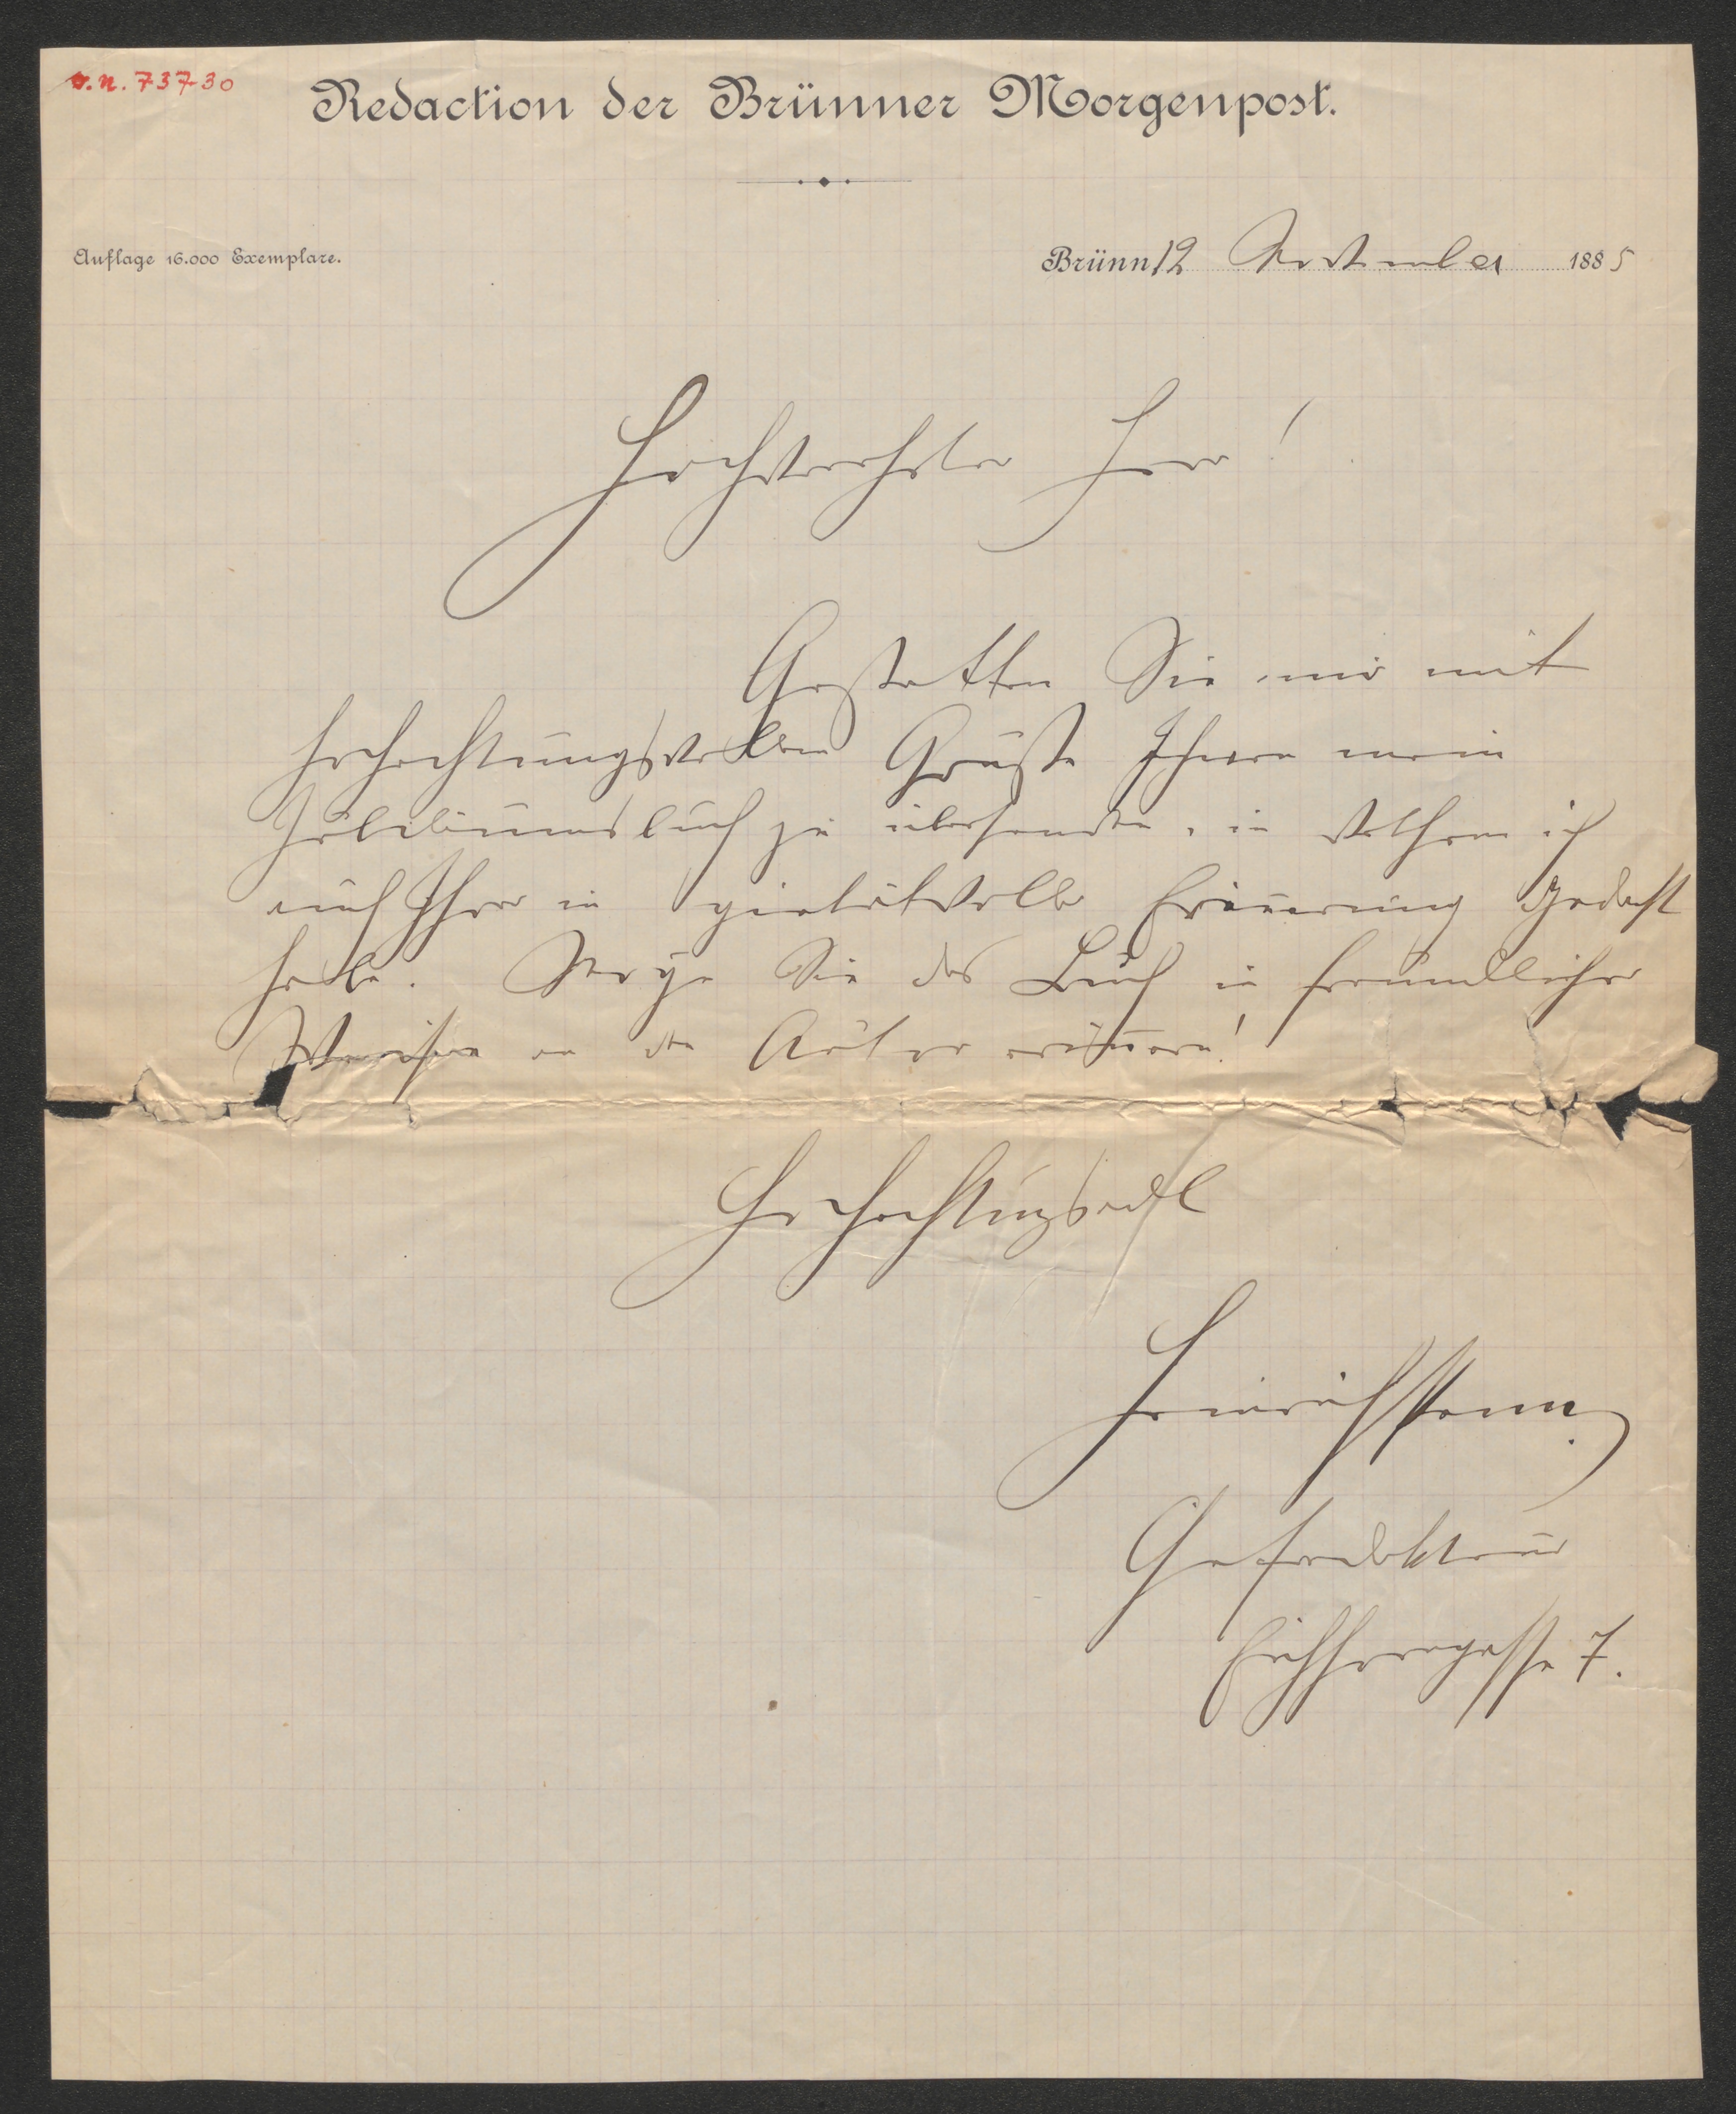 v.n. 73730
Redaction der Brünner Morgenpost.
Auflage 16.000 Exemplare.
Brünn 12 November 1885
Hochverehrter Herr!
Gestatten Sie mir mit
hochachtungsvollem Gruße Ihnen mein
Jubiläumsbuch zu übersenden, in welchem ich
auch Ihrer in pietätvoller Erinnerung gedacht
habe. Möge Sie das Buch in freundlicher
Weise an den Autor erinnern!
Hochachtungsvoll
Heinrich
Chefredakteur
7.